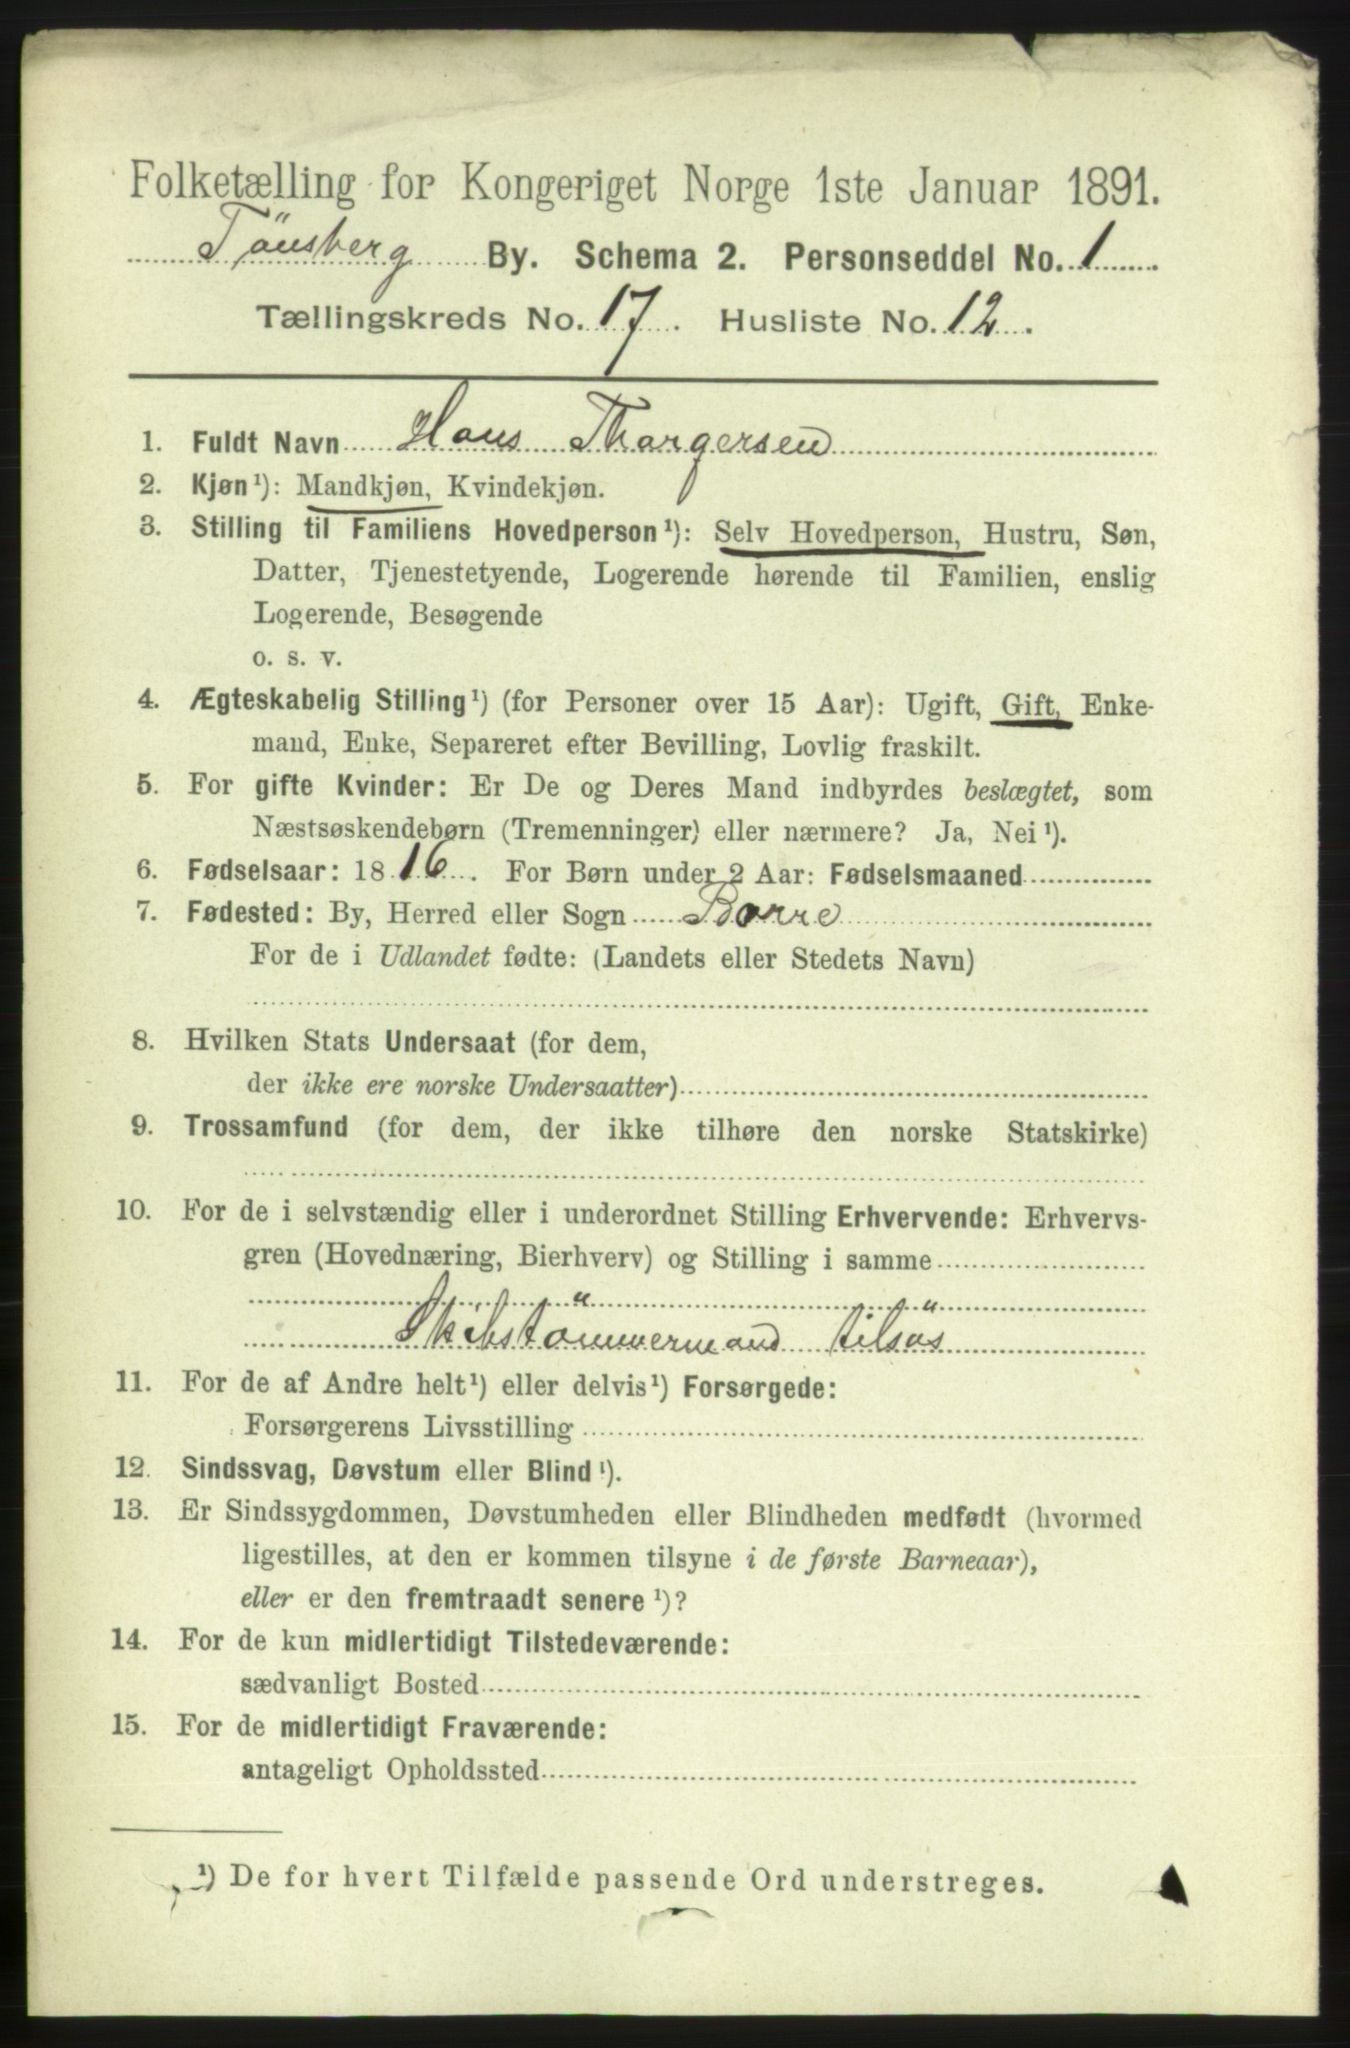 Folketælling for Kongeriget Norge 1ste Januar 1891.
Tönsberg By. Schema 2. Personseddel No. 1
Tællingskreds No. 17. Husliste No. 12.
1. Fuldt Navn Hans Thorgersen
2. Kjøn¹): Mandkjøn, Kvindekjøn.
3. Stilling til Familiens Hovedperson¹): Selv Hovedperson, Hustru, Søn,
Datter, Tjenestetyende, Logerende hørende til Familien, enslig
Logerende, Besøgende
o. s. v.
4. Ægteskabelig Stilling¹) (for Personer over 15 Aar): Ugift, Gift, Enke-
mand, Enke, Separeret efter Bevilling, Lovlig fraskilt.
5. For gifte Kvinder: Er De og Deres Mand indbyrdes beslægtet, som
Næstsøskendebørn (Tremenninger) eller nærmere? Ja, Nei¹).
6. Fødselsaar: 1816. For Børn under 2 Aar: Fødselsmaaned
7. Fødested: By, Herred eller Sogn Borre
For de i Udlandet fødte: (Landets eller Stedets Navn)
8. Hvilken Stats Undersaat (for dem,
der ikke ere norske Undersaatter)
9. Trossamfund (for dem, der ikke tilhøre den norske Statskirke)
10. For de i selvstændig eller i underordnet Stilling Erhvervende: Erhvervs-
gren (Hovednæring, Bierhverv) og Stilling i samme
Skibstömmermand tilsös
11. For de af Andre helt¹) eller delvis¹) Forsørgede:
Forsørgerens Livsstilling
12. Sindssvag, Døvstum eller Blind¹).
13. Er Sindssygdommen, Døvstumheden eller Blindheden medfødt (hvormed
ligestilles, at den er kommen tilsyne i de første Barneaar),
eller er den fremtraadt senere¹)?
14. For de kun midlertidigt Tilstedeværende:
sædvanligt Bosted
15. For de midlertidigt Fraværende:
antageligt Opholdssted
¹) De for hvert Tilfælde passende Ord understreges.